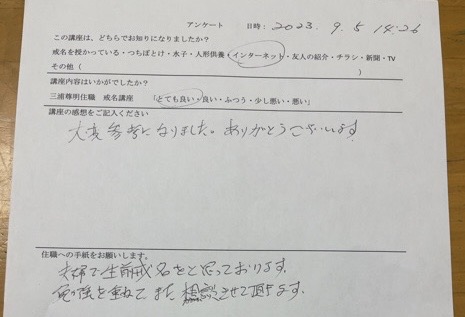 アンケート 日時: 2023. 9. 5 14:26
この講座は、どちらでお知りになりましたか?
戒名を授かっている・つちぼとけ・水子・人形供養・インターネット・友人の紹介・チラシ・新聞・TV
その他( )
講座内容はいかがでしたか?
三浦尊明住職 戒名講座 「とても良い・良い・ふつう・少し悪い・悪い」
講座の感想をご記入ください
大変参考になりました。ありがとうございます
住職への手紙をお願いします。
夫婦で生前戒名をと思っております。
勉強を重ねて また 相談させて頂きます。